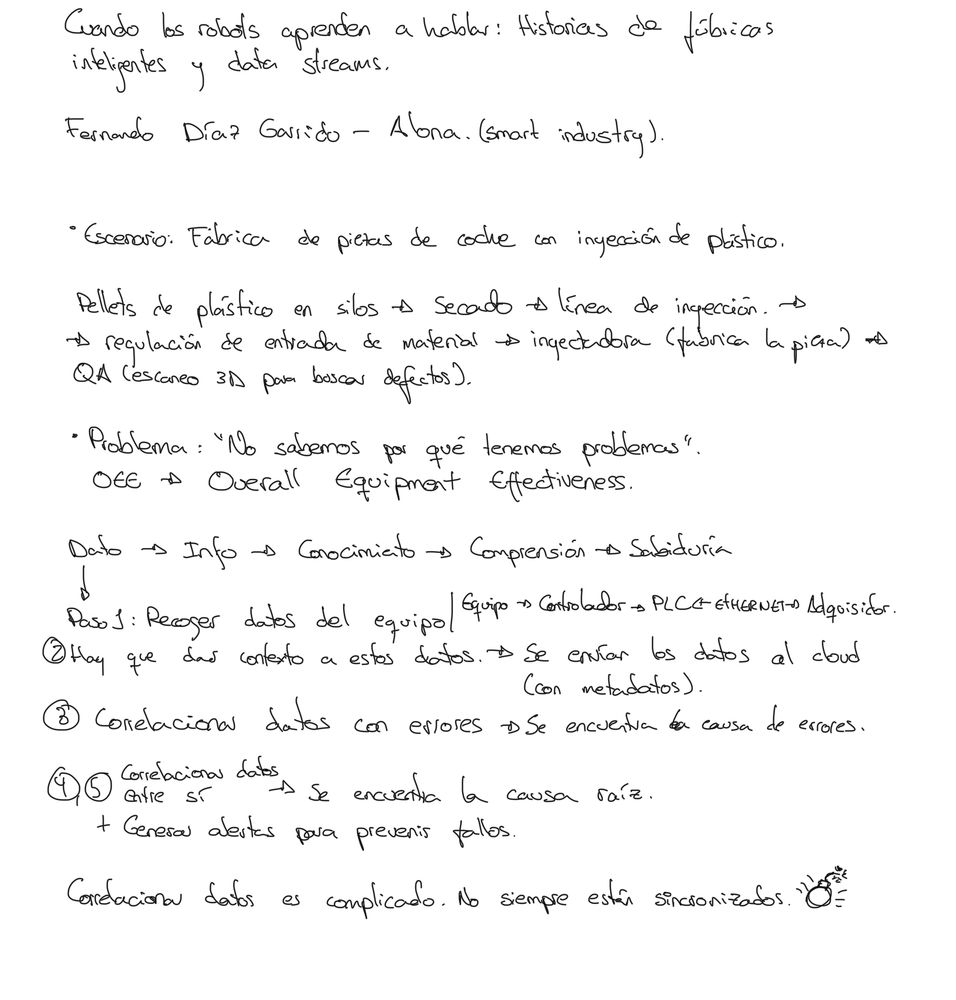 Cuando los robots aprenden a hablar: Historias de fábricas
inteligentes y data streams.
Fernando Díaz Garrido – Alona. (smart industry).
• Escenario: Fábrica de piezas de coche con inyección de plástico.
Pellets de plástico en silos → Secado → línea de inyección. →
→ regulación de entrada de material → inyectadora (fabrica la pieza) →
QA (escaneo 3D para buscar defectos).
• Problema: "No sabemos por qué tenemos problemas".
OEE → Overall Equipment Effectiveness.
Dato → Info → Conocimiento → Comprensión → Sabiduría
↓
Paso 1: Recoger datos del equipo | Equipo → Controlador → PLC ← ETHERNET → Adquisidor.
② Hay que dar contexto a estos datos. → Se envían los datos al cloud
(con metadatos).
③ Correlacionar datos con errores → Se encuentra la causa de errores.
④,⑤ Correlacionar datos
entre sí → Se encuentra la causa raíz.
+ Generar alertas para prevenir fallos.
Correlacionar datos es complicado. No siempre están sincronizados.